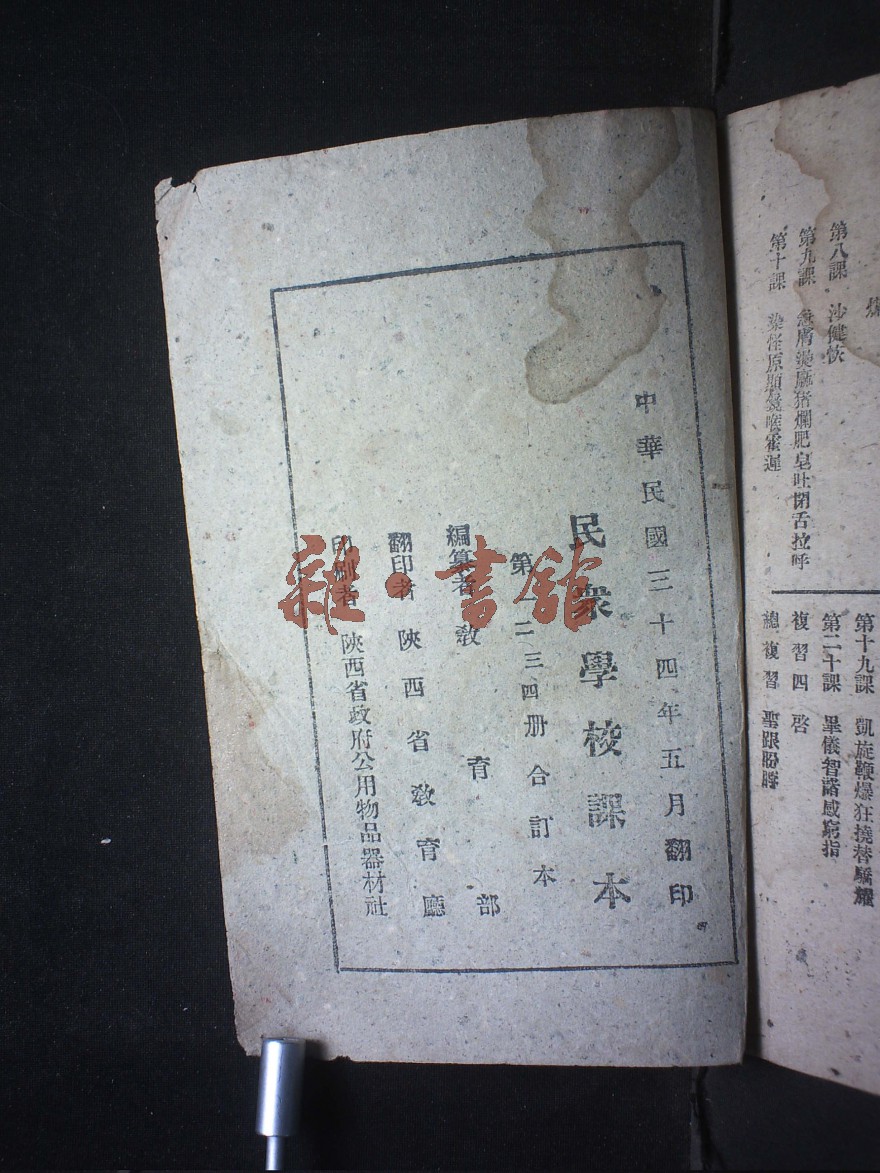 第八課　沙健恢
第九課　急膚燙麻猪爛肥皂吐閉舌拉呼
第十課　染怪原顯喉霍遲
第十九課　凱旋鞭爆狂撓替驕耀
第二十課　畢儀智諧感窮指
複習四　啓
總複習
中華民國三十四年五月翻印
民衆學校課本
第一二三四册合訂本
編纂者　教育部
翻印者　陝西省教育廳
印刷者　陝西省政府公用物品器材社
雜·書館